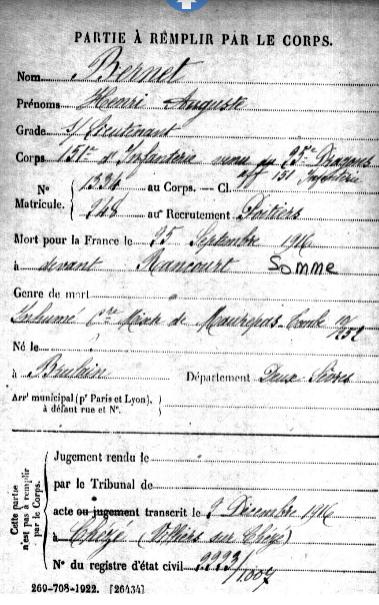 PARTIE À REMPLIR PAR LE CORPS.
Nom Bernet
Prénoms Henri Auguste
Grade S/Lieutenant
Corps 151e d'Infanterie venu du 25e Dragons
aff 151 Infanterie
N° 1334 au Corps. — Cl.
Matricule. 948 au Recrutement Poitiers
Mort pour la France le 25 Septembre 1916
à devant Rancourt SOMME
Genre de mort
Inhumé Cre Mixte de Maurepas. Tombe
Né le
à Brulain Département Deux Sèvres
Arrt municipal (pr Paris et Lyon),
à défaut rue et N°.
Cette partie
n'est pas à remplir
par le Corps.
Jugement rendu le
par le Tribunal de
acte ou jugement transcrit le 9 Décembre 1916
à Chizé (Villiers sur Chizé)
N° du registre d'état civil 2223/1007
269-708-1922. [26434]